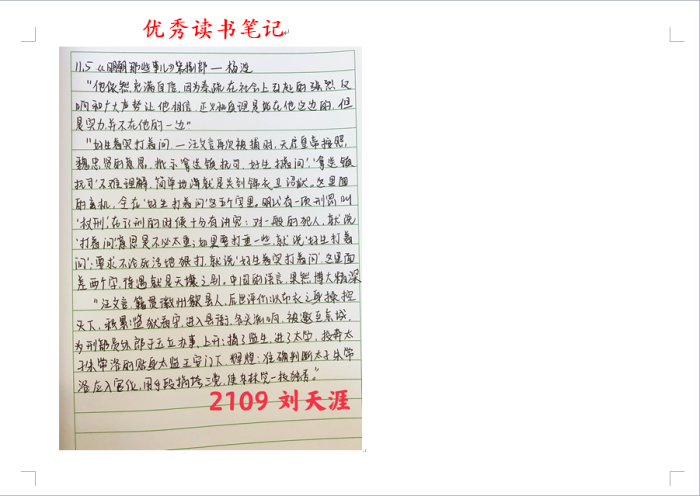 优秀读书笔记
11.5《明朝那些事儿》第捌部 — 杨涟
"他依然充满自信,因为奏疏在社会上引起的强烈反
响和广大声势让他相信,正义和真理是站在他这边的,但
是实力,并不在他的一边"
"好生着实打着问. — 汪文言再次被捕时,天启皇帝按照
魏忠贤的意愿,批示'拿送镇抚司,好生打着问',拿送镇
抚司'不难理解,简单地讲就是关到锦衣卫诏狱,这里面
的玄机,全在'好生打着问'这五个字里,明代有一项刑罚,叫
'杖刑',在行刑的时候十分有讲究:对一般的犯人,就说
'打着问'意思是不必太重;如果要打重一些,就说'好生打着
问';要求不论死活地狠打,就说'好生着实打着问'.这里面
差两个字,待遇就是天壤之别,中国的语言,果然博大精深
"汪文言,籍贯徽州歙县人,后世评价:以布衣之身操控
天下,积累:监狱看守,进入县衙,名头渐响,被邀至京城,
为刑部员外郎于玉立办事,上升:捐了监生,进了太学,投奔太
子朱常洛的贴身太监王安门下,辉煌:准确判断太子朱常
洛应入宫位,用手段搞垮三党,使东林党一枝独秀。"
2109 刘天涯